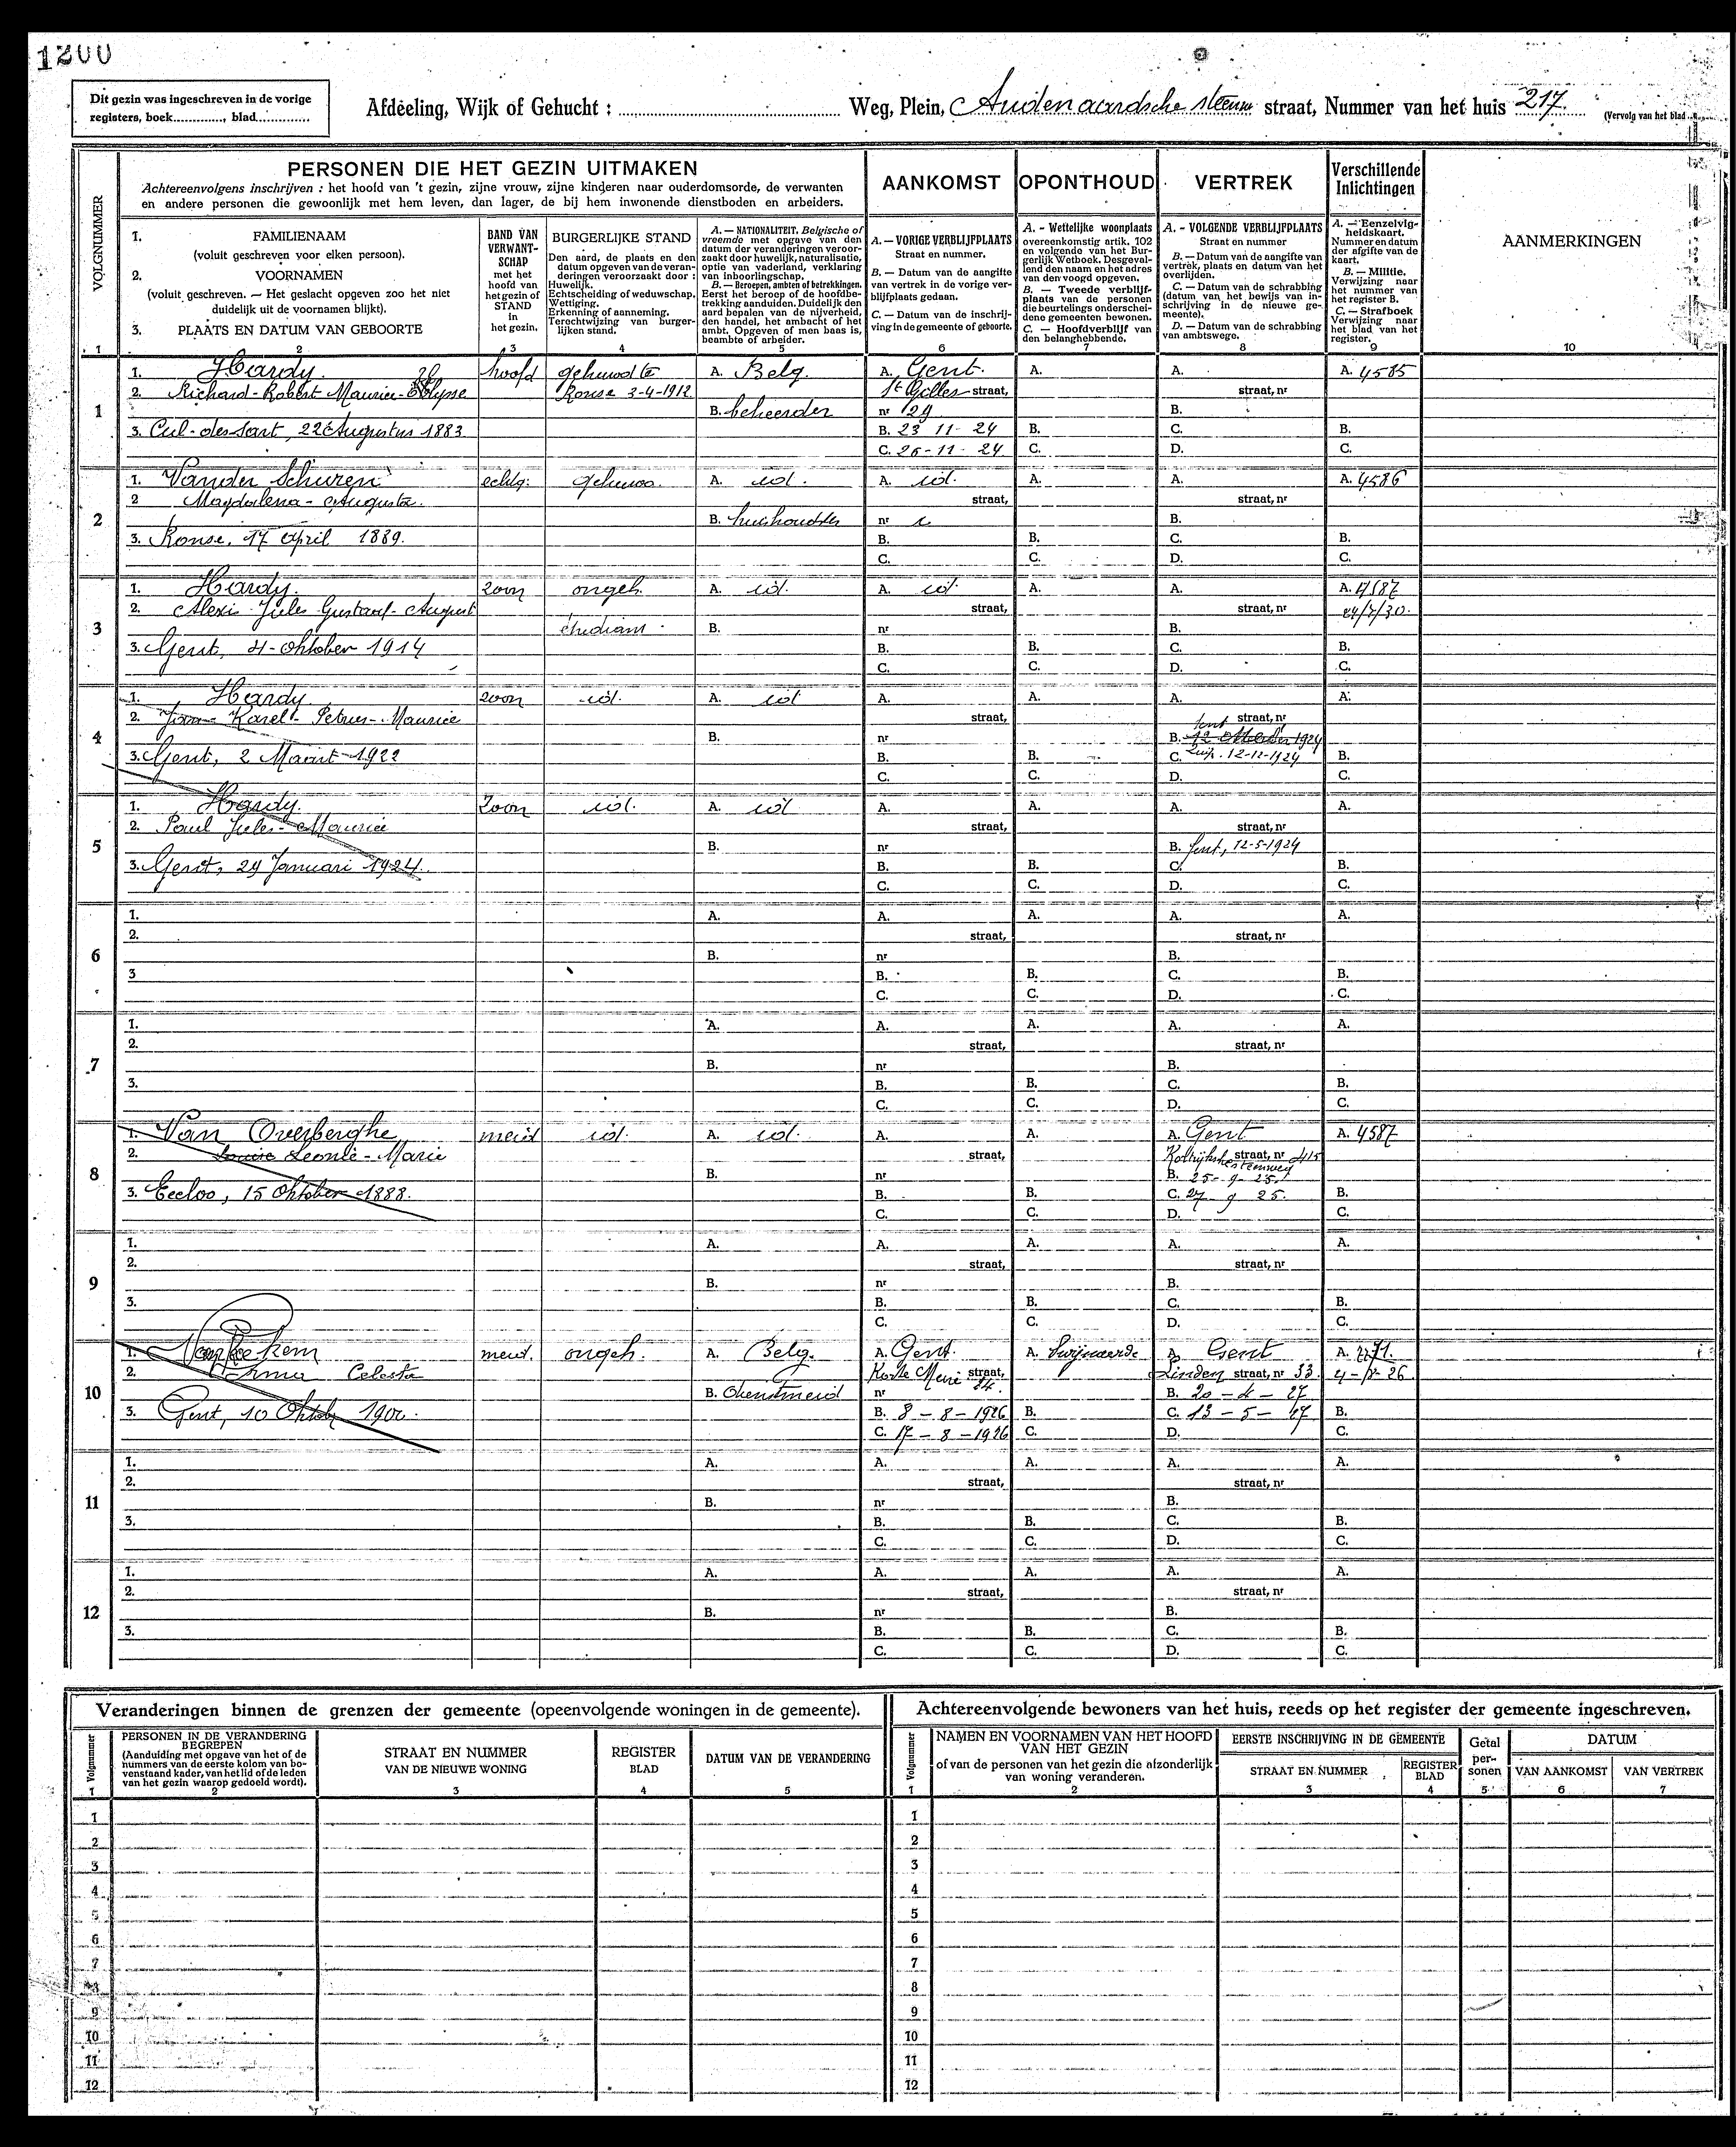 1200
Dit gezin was ingeschreven in de vorige
registers, boek............., blad.............
Afdeeling, Wijk of Gehucht : ............ Weg, Plein, Audenaardsche steenw straat, Nummer van het huis 217.
(Vervolg van het blad
PERSONEN DIE HET GEZIN UITMAKEN
Achtereenvolgens inschrijven : het hoofd van 't gezin, zijne vrouw, zijne kinderen naar ouderdomsorde, de verwanten
en andere personen die gewoonlijk met hem leven, dan lager, de bij hem inwonende dienstboden en arbeiders.
AANKOMST
OPONTHOUD
VERTREK
Verschillende
Inlichtingen
VOLGNUMMER
1. FAMILIENAAM
(voluit geschreven voor elken persoon).
2. VOORNAMEN
(voluit geschreven. — Het geslacht opgeven zoo het niet
duidelijk uit de voornamen blijkt).
3. PLAATS EN DATUM VAN GEBOORTE
BAND VAN
VERWANT-
SCHAP
met het
hoofd van
het gezin of
STAND
in
het gezin.
BURGERLIJKE STAND
Den aard, de plaats en den
datum opgeven van de veran-
deringen veroorzaakt door :
Huwelijk.
Echtscheiding of weduwschap.
Wettiging.
Erkenning of aanneming.
Terechtwijzing van burger-
lijken stand.
A. — NATIONALITEIT. Belgische of
vreemde met opgave van den
datum der veranderingen veroor-
zaakt door huwelijk, naturalisatie,
optie van vaderland, verklaring
van inboorlingschap.
B. — Beroepen, ambten of betrekkingen.
Eerst het beroep of de hoofdbe-
trekking aanduiden. Duidelijk den
aard bepalen van de nijverheid,
den handel, het ambacht of het
ambt. Opgeven of men baas is,
beambte of arbeider.
A. — VORIGE VERBLIJFPLAATS
Straat en nummer.
B. — Datum van de aangifte
van vertrek in de vorige ver-
blijfplaats gedaan.
C. — Datum van de inschrij-
ving in de gemeente of geboorte.
A. - Wettelijke woonplaats
overeenkomstig artik. 102
en volgende van het Bur-
gerlijk Wetboek. Desgeval-
lend den naam en het adres
van den voogd opgeven.
B. — Tweede verblijf-
plaats van de personen
die beurtelings onderschei-
dene gemeenten bewonen.
C. — Hoofdverblijf van
den belanghebbende.
A. - VOLGENDE VERBLIJFPLAATS
Straat en nummer
B. — Datum van de aangifte van
vertrek, plaats en datum van het
overlijden.
C. — Datum van de schrabbing
(datum van het bewijs van in-
schrijving in de nieuwe ge-
meente).
D. — Datum van de schrabbing
van ambtswege.
A. — Eenzelvig-
heidskaart.
Nummer en datum
der afgifte van de
kaart.
B. — Militie.
Verwijzing naar
het nummer van
het register B.
C. — Strafboek
Verwijzing naar
het blad van het
register.
AANMERKINGEN
1 2 3 4 5 6 7 8 9 10
1
1. Hardy. hoofd gehuwd te A. Belg. A. Gent. A. A. A. 4585
2. Richard-Robert-Maurice Ronse 3-4-1912 St Gilles straat, straat, nr
B. beheerder nr 29 B.
3. Cul-des-Sart, 22 Augustus 1883 B. 23 11-24 B. C. B.
C. 26-11-24 C. D. C.
2
1. Vander Schuren echtg. gehuwd. A. id. A. id. A. A. A. 4586
2 Magdalena-Augusta. straat, straat, nr
B. huishoudster nr B.
3. Ronse, 17 April 1889. B. B. C. B.
C. C. D. C.
3
1. Hardy. zoon ongeh. A. id. A. id. A. A. A. 4587
2. Alexis-Jules-Gustaaf-August straat, straat, nr 24/7/30.
B. nr B.
3. Gent, 4-Oktober 1914 B. B. C. B.
C. C. D. C.
4
1. Hardy. zoon id. A. id A. A. A. A.
2. Karel-Petrus-Maurice straat, straat, nr
B. nr Gent B. 12 October 1924
3. Gent, 2 Maart 1922 B. B. C. 12-12-1924 B.
C. C. D. C.
5
1. Hardy. Zoon id. A. id A. A. A. A.
2. Paul Jules-Maurice straat, straat, nr
B. nr B. Gent, 12-5-1924
3. Gent, 29 Januari 1924. B. B. C. B.
C. C. D. C.
6
1. A. A. A. A. A.
2. straat, straat, nr
B. nr B.
3 B. B. C. B.
C. C. D. C.
7
1. A. A. A. A. A.
2. straat, straat, nr
B. nr B.
3. B. B. C. B.
C. C. D. C.
8
1. Van Overberghe meid id. A. id. A. A. A. Gent A. 4587
2. Louise Leonie-Marie straat, Kortrijkschesteenweg straat, nr 415
B. nr B. 25-9-25.
3. Eecloo, 15 Oktober 1888. B. B. C. 27-9 25. B.
C. C. D. C.
9
1. A. A. A. A. A.
2. straat, straat, nr
B. nr B.
3. B. B. C. B.
C. C. D. C.
10
1. meid. ongeh. A. Belg. A. Gent. A. Swijnaerde A. Gent A.
2. Irma Celesta Korte Meire straat, Linden straat, nr 33 4-8-26
B. dienstmeid nr 24. B. 20-4-27
3. Gent, 10 Oktob 1900. B. 8-8-1926 B. C. 13-5-27 B.
C. 17-8-1926 C. D. C.
11
1. A. A. A. A. A.
2. straat, straat, nr
B. nr B.
3. B. B. C. B.
C. C. D. C.
12
1. A. A. A. A. A.
2. straat, straat, nr
B. nr B.
3. B. B. C. B.
C. C. D. C.
Veranderingen binnen de grenzen der gemeente (opeenvolgende woningen in de gemeente).
Volgnummer
PERSONEN IN DE VERANDERING
BEGREPEN
(Aanduiding met opgave van het of de
nummers van de eerste kolom van bo-
venstaand kader, van het lid of de leden
van het gezin waarop gedoeld wordt).
STRAAT EN NUMMER
VAN DE NIEUWE WONING
REGISTER
BLAD
DATUM VAN DE VERANDERING
1 2 3 4 5
1
2
3
4
5
6
7
8
9
10
11
12
Achtereenvolgende bewoners van het huis, reeds op het register der gemeente ingeschreven.
Volgnummer
NAMEN EN VOORNAMEN VAN HET HOOFD
VAN HET GEZIN
of van de personen van het gezin die afzonderlijk
van woning veranderen.
EERSTE INSCHRIJVING IN DE GEMEENTE
STRAAT EN NUMMER
REGISTER
BLAD
Getal
per-
sonen
DATUM
VAN AANKOMST
VAN VERTREK
1 2 3 4 5 6 7
1
2
3
4
5
6
7
8
9
10
11
12